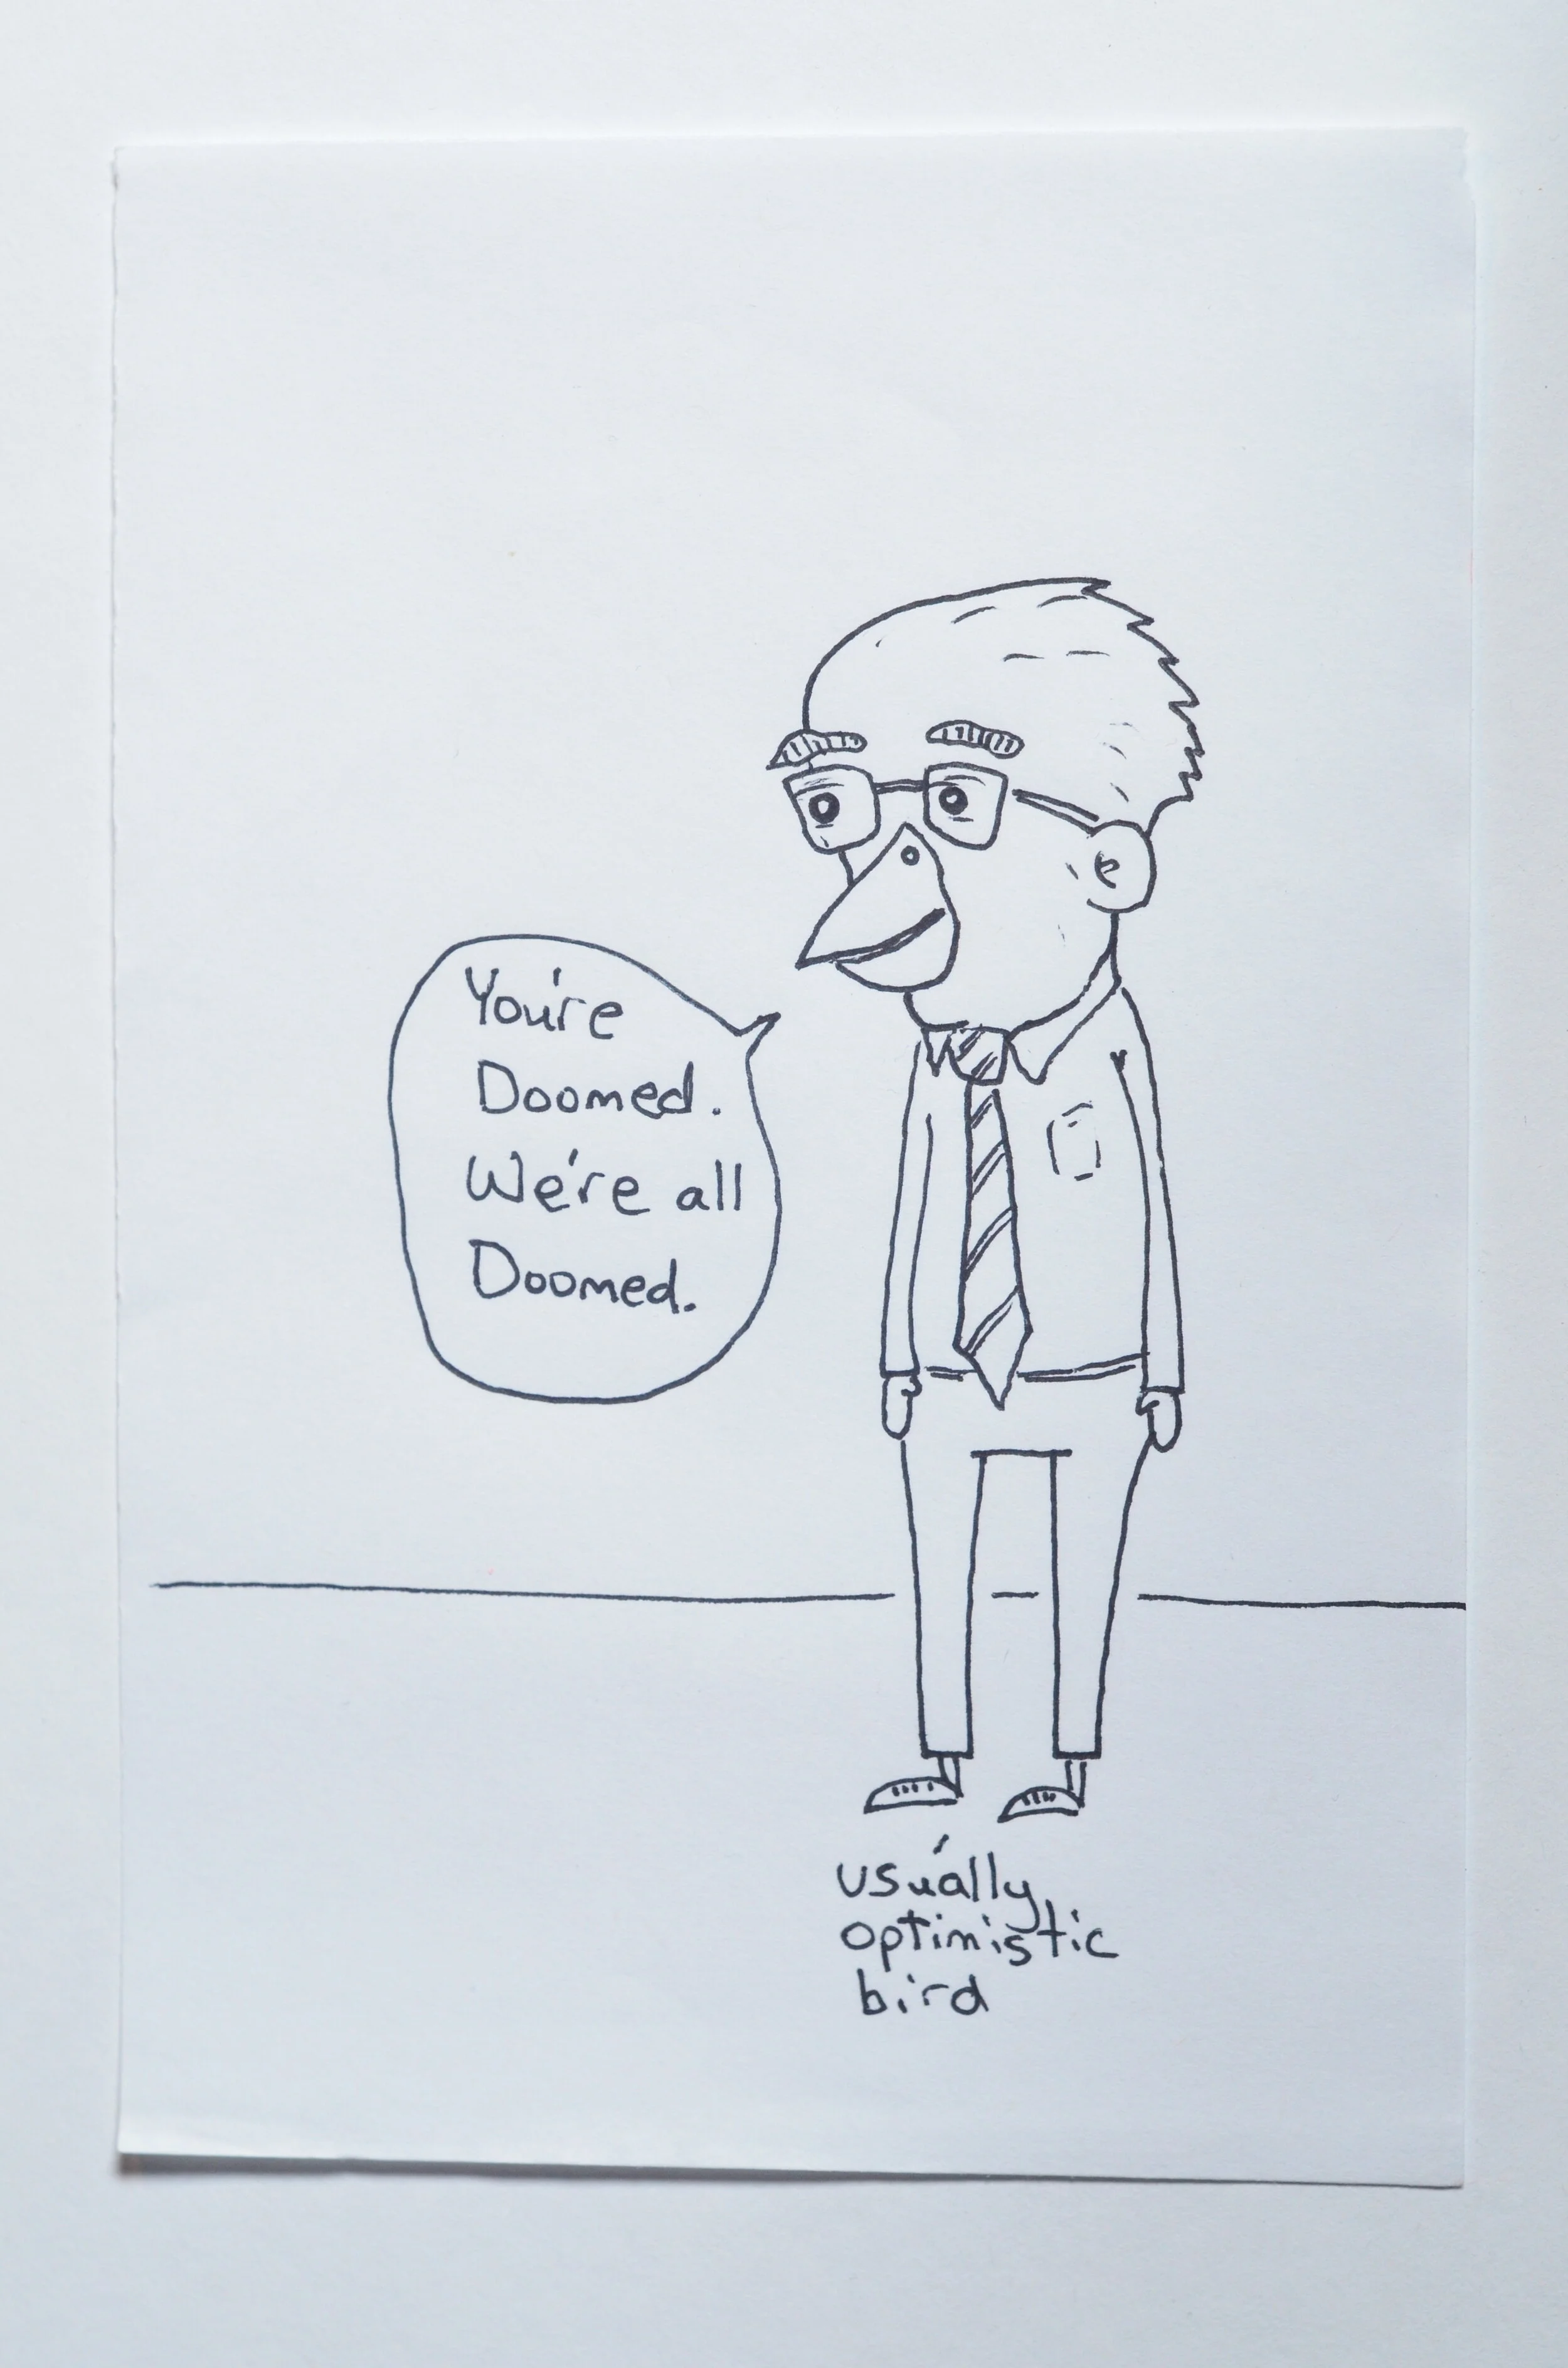 You're
Doomed.
We're all
Doomed.
usually
optimistic
bird